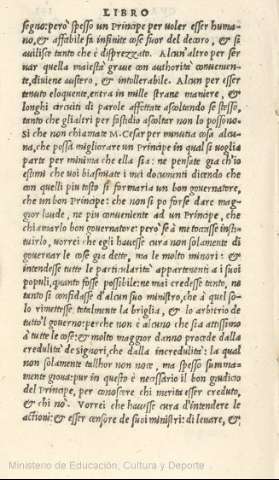 LIBRO
segno: però spesso un Principe per voler esser huma-
no, & affabile fa infinite cose fuor del decoro, & si
avilisce tanto che è disprezzato. Alcun'altro per ser
var quella maiestà grave con authorità convenevole
te, diviene austero, & intollerabile. Alcun per esser
tenuto eloquente, entra in mille strane maniere, &
longhi circuiti di parole affettate ascoltando se stesso,
tanto che gli altri per fastidio ascoltar non lo possono.
Si che non chiamate M. Cesar per minutia cosa alcu-
na, che possa migliorare un Principe in qual si voglia
parte per minima che ella sia: ne pensate gia ch'io
estimi che voi biasmiate i miei documenti dicendo che
con quelli piu tosto si formaria un bon governatore,
che un bon Principe: che non si po forse dare mag-
gior laude, ne piu conveniente ad un Principe, che
chiamarlo bon governatore: però se à me toccasse insti-
tuirlo, vorrei che egli havesse cura non solamente di
governar le cose gia dette, ma le molto minori: &
intendesse tutte le particularità appartenenti a i suoi
populi, quanto fosse possibile: ne mai credesse tanto, ne
tanto si confidasse d'alcun suo ministro, che à quel so-
lo rimettesse totalmente la briglia, & lo arbitrio de
tutto'l governo: perche non è alcuno che sia attissimo
à tutte le cose: & molto maggior danno procede dalla
credulità de signori, che dalla incredulità: la qual
non solamente talhor non noce, ma spesso summa-
mente giova: pur in questo è necessario il bon giudicio
del Principe, per conoscere chi merita esser creduto,
& chi nò. Vorrei che havesse cura d'intendere le
actioni: & esser censore de suoi ministri: di levare, &
Ministerio de Educación, Cultura y Deporte